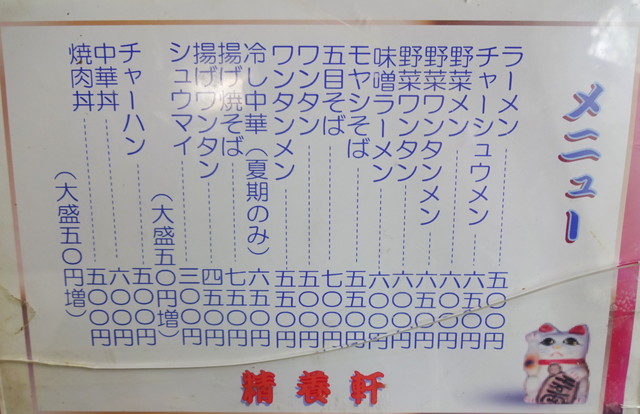 メニュー
ラーメン 五〇〇円
チャーシュウメン 六五〇円
野菜メン 六〇〇円
野菜ワンタンメン 六五〇円
野菜ワンタン 六〇〇円
味噌ラーメン 六〇〇円
モヤシそば 五五〇円
五目そば 七〇〇円
ワンタン 五〇〇円
ワンタンメン 五五〇円
冷し中華(夏期のみ) 六五〇円
揚げ焼そば 七五〇円
揚げワンタン 四五〇円
シュウマイ 三〇〇円
(大盛五〇円増)
チャーハン 五〇〇円
中華丼 六〇〇円
焼肉丼 五〇〇円
(大盛五〇円増)
精養軒